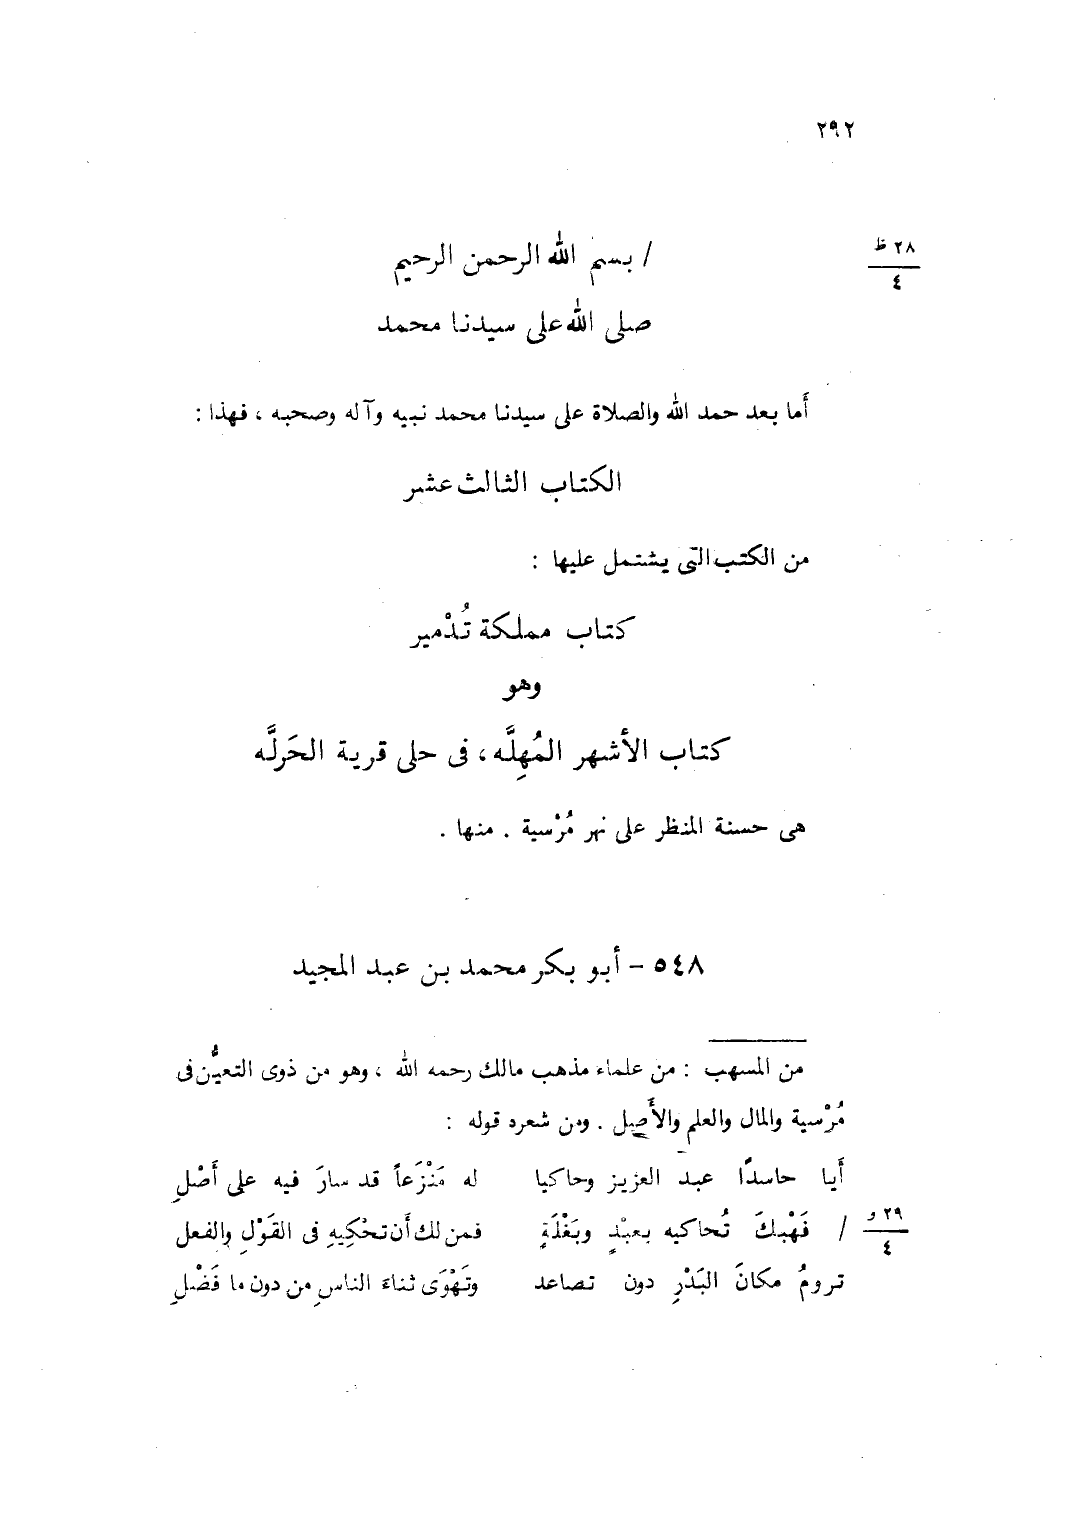 ٢٩٢
/ بسم الله الرحمن الرحيم
٢٨ ظ
٤
صلى الله على سيدنا محمد
أما بعد حمد الله والصلاة على سيدنا محمد نبيه وآله وصحبه ، فهذا :
الكتاب الثالث عشر
من الكتب التى يشتمل عليها :
كتاب مملكة تُدْمير
وهو
كتاب الأشهر المُهِلَّه ، فى حلى قرية الحَرلَّه
هى حسنة المنظر على نهر مُرْسية . منها .
٥٤٨ – أبو بكر محمد بن عبد المجيد
من المسهب : من علماء مذهب مالك رحمه الله ، وهو من ذوى التعيُّن فى
مُرْسية والمال والعلم والأَصل . ومن شعره قوله :
أيا حاسدًا عبد العزيز وحاكيا له مَنْزَعاً قد سارَ فيه على أَصْلِ
/ فَهْبكَ تُحاكيه بعبْدٍ وبَغْلَةٍ فمن لك أن تحْكِيهِ فى القَوْلِ والفعل
٢٩ و
٤
ترومُ مكانَ البَدْرِ دون تصاعد وتَهْوَى ثناءَ الناسِ من دون ما فَضْلِ